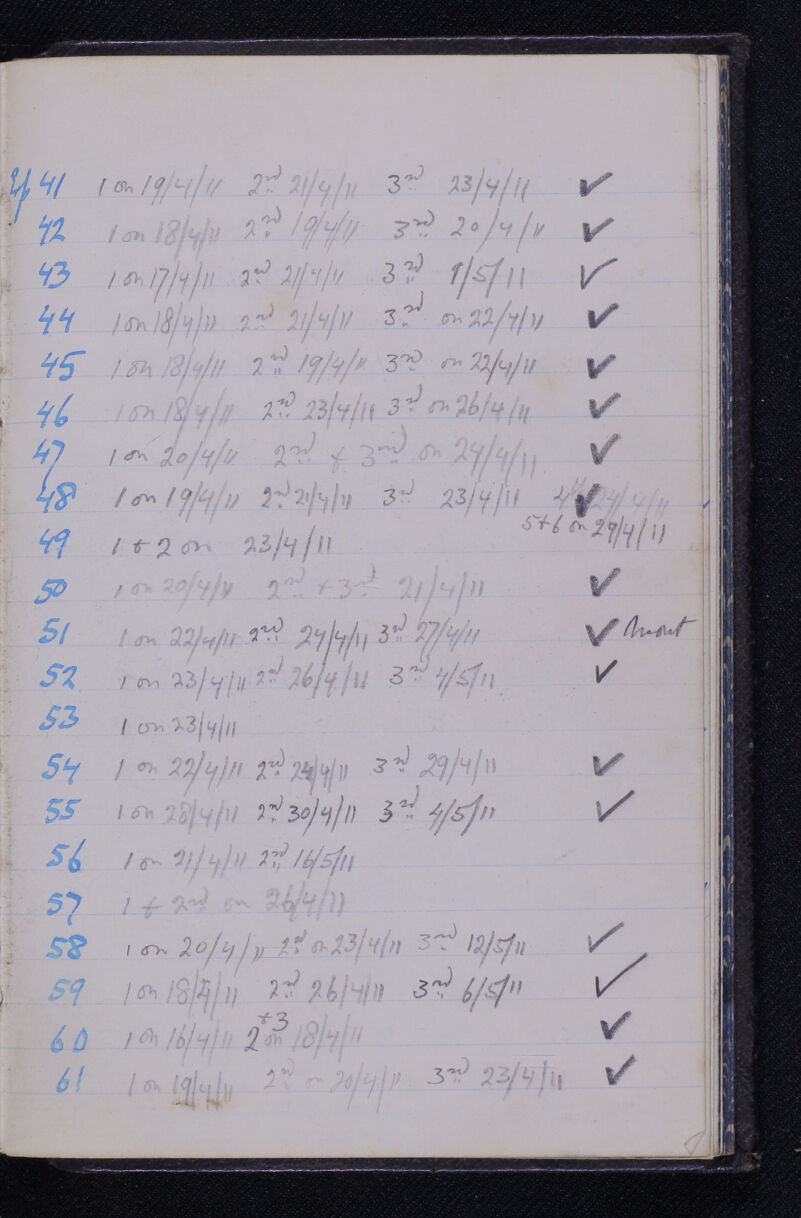 41 1 on 19/4/11 2nd 21/4/11 3rd 23/4/11 ✓
42 1 on 18/4/11 2nd 19/4/11 3rd 20/4/11 ✓
43 1 on 17/4/11 2nd 21/4/11 3rd 1/5/11 ✓
44 1 on 18/4/11 2nd 21/4/11 3rd on 22/4/11 ✓
45 1 on 18/4/11 2nd 19/4/11 3rd on 22/4/11 ✓
46 1 on 18/4/11 2nd 23/4/11 3rd on 26/4/11 ✓
47 1 on 20/4/11 2nd + 3rd on 24/4/11 ✓
48 1 on 19/4/11 2nd 21/4/11 3rd 23/4/11 ✓ 4th 24/4/11
5+6 on 29/4/11
49 1 + 2 on 23/4/11
50 1 on 20/4/11 2nd + 3rd 21/4/11 ✓
51 1 on 22/4/11 2nd 24/4/11 3rd 27/4/11 ✓
52 1 on 23/4/11 2nd 26/4/11 3rd 4/5/11 ✓
53 1 on 23/4/11
54 1 on 22/4/11 2nd 24/4/11 3rd 29/4/11 ✓
55 1 on 28/4/11 2nd 30/4/11 3rd 4/5/11 ✓
56 1 on 21/4/11 2nd 16/5/11
57 1 + 2nd on 26/4/11
58 1 on 20/4/11 2nd on 23/4/11 3rd 12/5/11 ✓
59 1 on 18/4/11 2nd 26/4/11 3rd 6/5/11 ✓
60 1 on 16/4/11 2 +3 on 18/4/11 ✓
61 1 on 19/4/11 2nd on 20/4/11 3rd 23/4/11 ✓